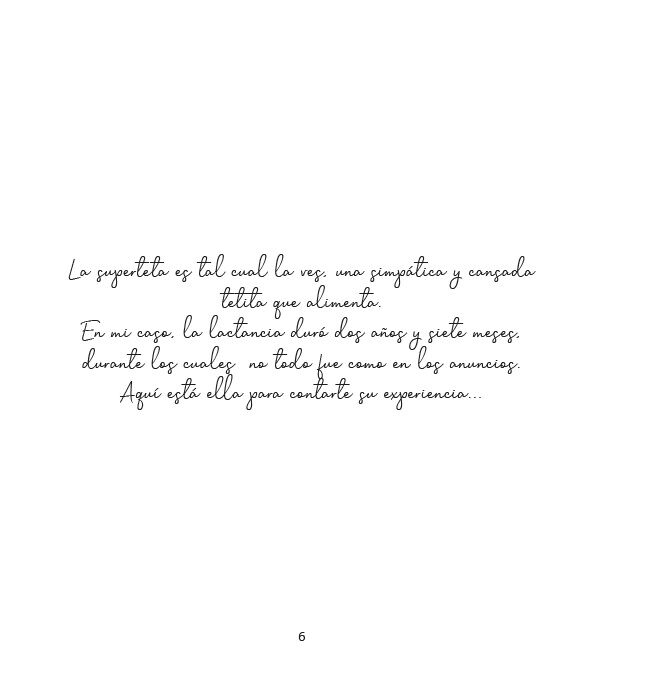 La superteta es tal cual la ves, una simpática y cansada
tetita que alimenta.
En mi caso, la lactancia duró dos años y siete meses,
durante los cuales no todo fue como en los anuncios.
Aquí está ella para contarte su experiencia...
6